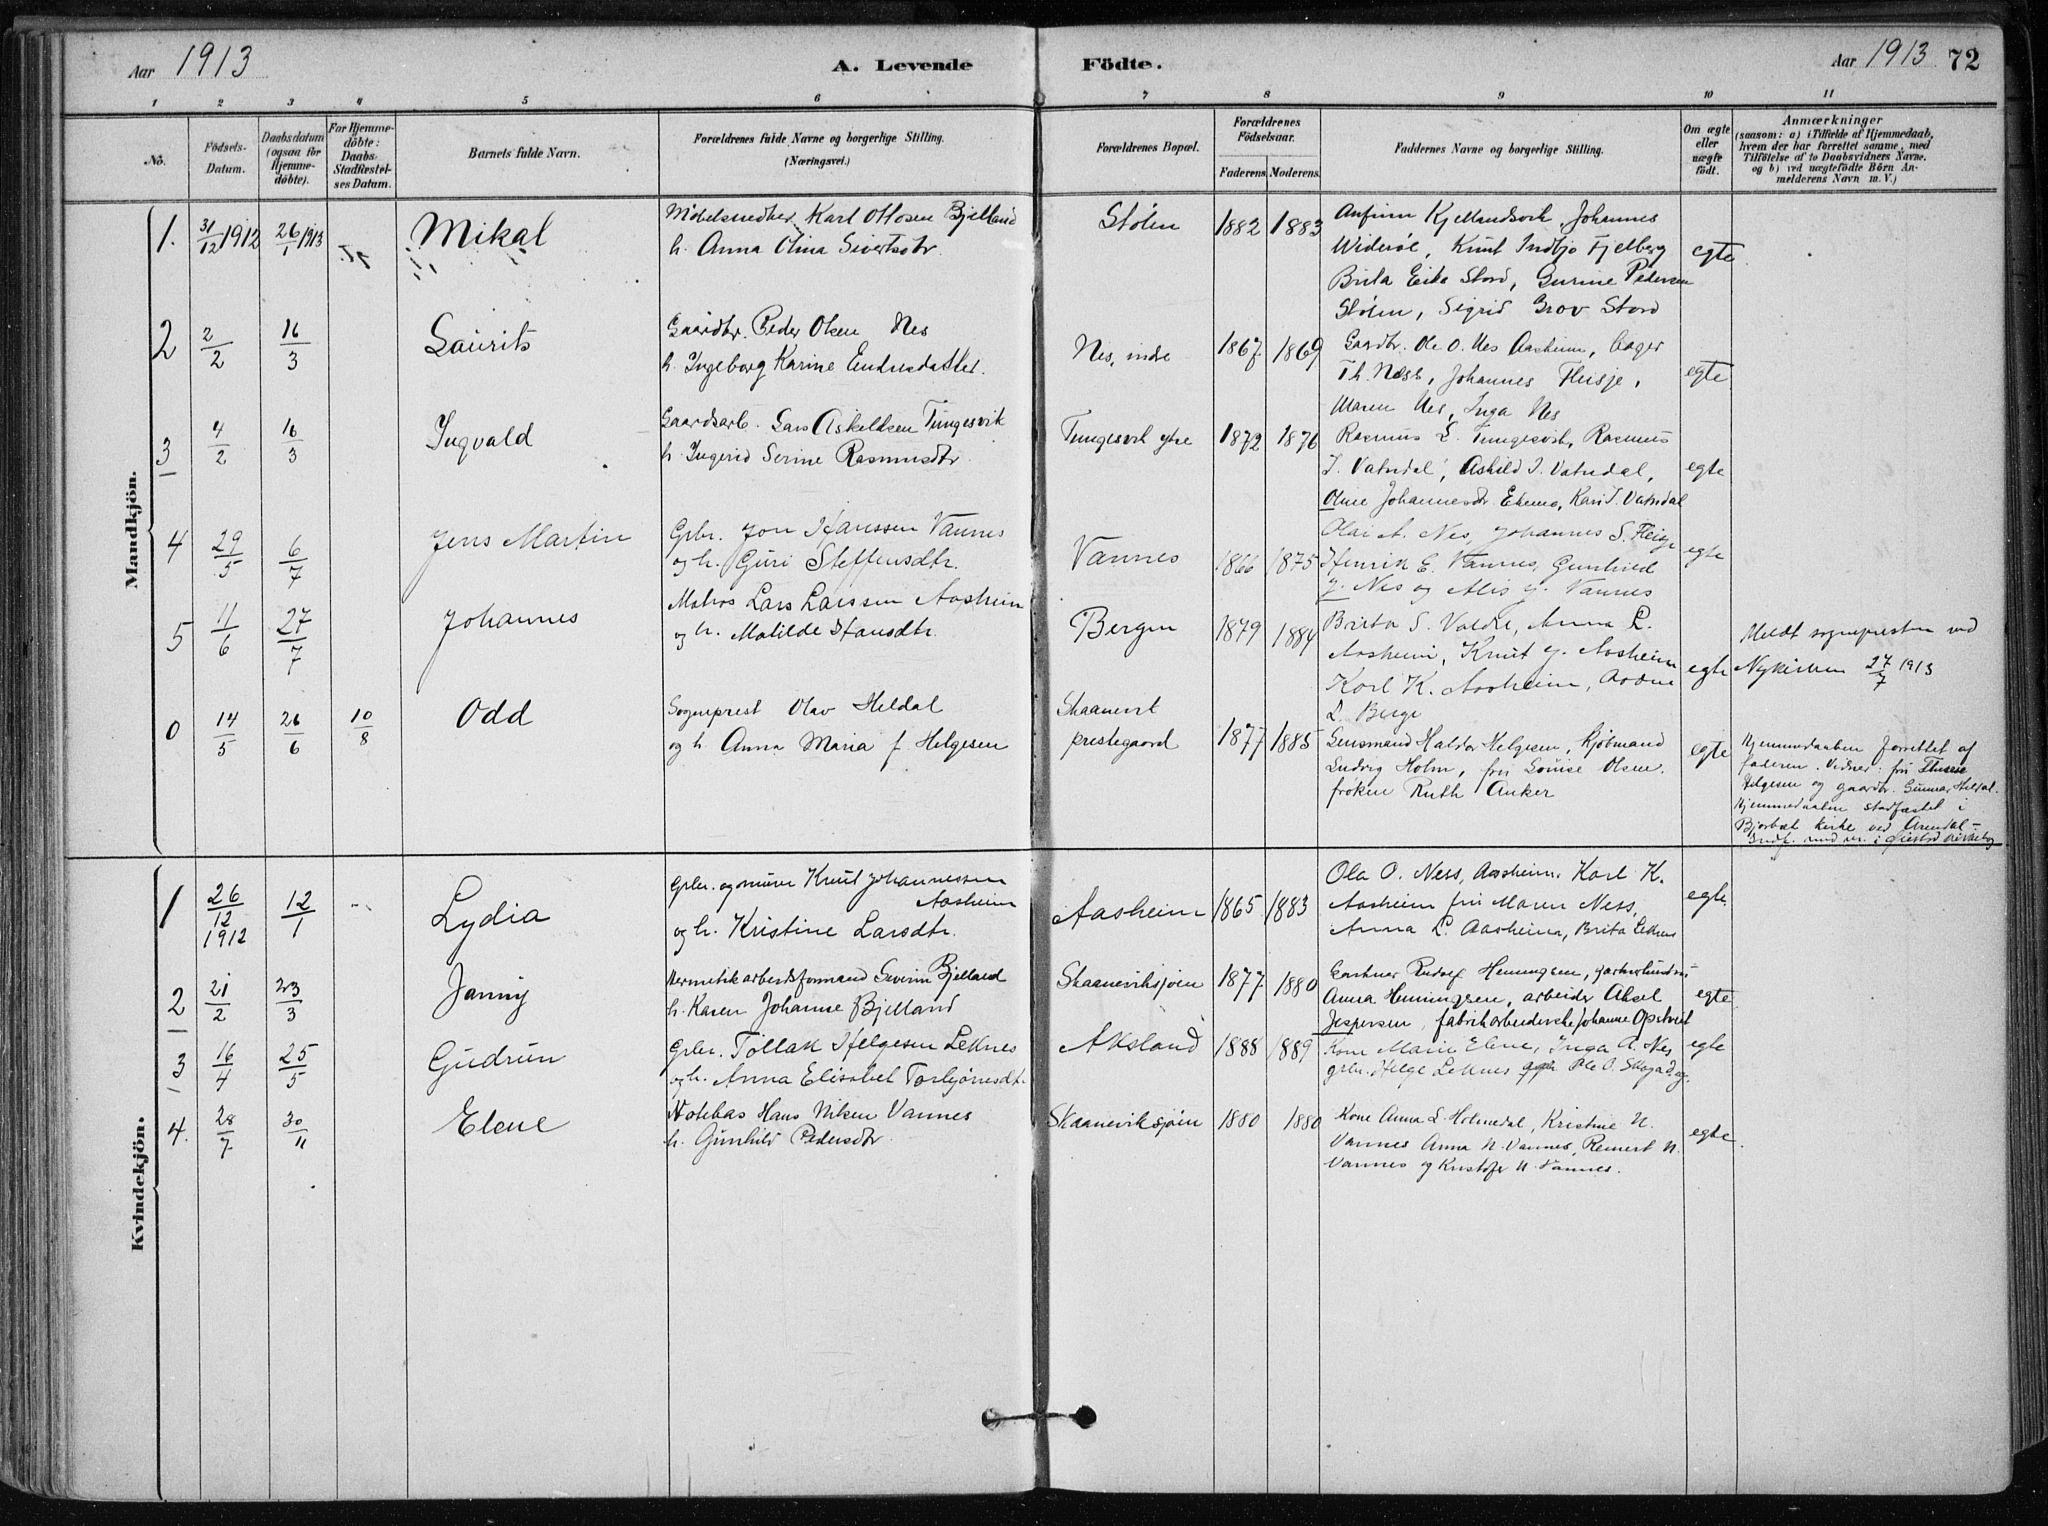 Aar 1913
A. Levende Födte.
Aar 1913 72
1 2 3 4 5 6 7 8 9 10 11
No.
Födsels-Datum.
Daabsdatum (ogsaa for Hjemme-döbte).
For Hjemme-döbte: Daabs-Stadfæstel-ses Datum.
Barnets fulde Navn.
Forældrenes fulde Navne og borgerlige Stilling.
(Næringsvei.)
Forældrenes Bopæl.
Forældrenes Födselsaar.
Faderens. Moderens.
Faddernes Navne og borgerlige Stilling.
Om ægte eller uægte födt.
Anmærkninger
(saasom: a) i Tilfælde af Hjemmedaab,
hvem der har forrettet samme, med
Tilföielse af to Daabsvidners Navne.
og b) ved uægtefödte Börn An-
melderens Navn m. V.)
Mandkjön.
1. 31/12 1912 26/1 1913 Mikal
Möbelsnedker Karl Ottosen Bjelland
h. Anna Olina Sivertsdtr.
Stølen 1882 1883
Anfinn Kjellandsvik, Johannes
Widerøe, Knut Indbjo Fjelberg
Brita Eike Stord, Gurine Pedersen
Stølen, Sigrid Grov Stord
egte
2 2/2 16/3 Laurits
Gaardbr. Peder Olsen Nes
h. Ingeborg Karine Endresdatter.
Nes, indre 1867 1869
Gardbr. Ole O. Nes Aasheim, bager
Th. Ness, Johannes Fleisje,
Maren Nes, Inga Nes
egte
3 4/2 16/3 Ingvald
Gaardsarb. Lars Askeldsen Tungesvik
h. Ingerid Serine Rasmusdtr.
Tungesvik ytre 1872 1876
Rasmus L. Tungesvik, Rasmus
I. Vatndal, Askild I. Vatndal,
Oline Johannesdtr. Ekemo, Kari I. Vatndal
egte
4 29/5 6/7 Jens Martin
Grbr. Jon Hanssen Vannes
og h. Guri Steffensdtr.
Vannes 1866 1875
Olai A. Nes, Johannes S. Fleisje
Henrik E. Vannes, Gunhild
J. Nes og Alis J. Vannes
egte
5 11/6 27/7 Johannes
Matros Lars Larssen Aasheim
og h. Matilde Hansdtr.
Bergen 1879 1884
Brita S. Valde, Anna L.
Aasheim, Knut J. Aasheim
Karl K. Aasheim,
L. Berge
egte
Meldt sognepresten ved
Nykirken 27/7 1913
0 14/5 26/6 10/8 Odd
Sogneprest Olav Heldal
og h. Anna Maria f. Helgesen
Skaanevik
prestegaard 1877 1885
Lensmand Haldor Helgesen, kjöbmand
Ludvig Holm, fru Louise Olsen.
fröken Ruth Anker
egte
Hjemmedaaben forrettet af
faderen. Vidner: fru Therese
Helgesen og gaardbr. Gunnar Heldal.
Hjemmedaaben stadfæstet i
Bjorbæk kirke ved Arendal –
Indf. und. nr. i Øiestad kirkebog
Kvindekjön.
1 26/12 1912 12/1 Lydia
Grbr. og murer Knut Johannessen
Aasheim
og h. Kristine Larsdtr.
Aasheim 1865 1883
Ola O. Ness, Aasheim, Karl K.
Aasheim fru Maren Ness,
Anna L. Aasheim, Brita Leknes
egte.
2 21/2 23/3 Janny
Hermetikarbeidsformand Severin Bjelland
h. Karen Johanne Bjelland
Skaaneviksjøen 1877 1880
Gartner Rudolf Henningsen, gartnerhustru
Anna Henningsen, arbeider Aksel
Jespersen, fabrikarbeiderske Johanne Opstveit
egte
3 16/4 25/5 Gudrun
Grbr. Tollak Helgesen Leknes
og h. Anna Elisabet Torbjörnsdtr.
Aksland 1888 1889
Kone Marie Elene, Inga A. Nes
grbr. Helge Leknes Ole O. Skogad.
egte
4. 28/7 30/11 Elene
Notebas Hans Nilsen Vannes
h. Gunhild Pedersdtr
Skaaneviksjøen 1880 1880
Kone Anna L. Holmedal, Kristine N.
Vannes Anna N. Vannes, Reinert N.
Vannes og Kristofer N. Vannes.
egte.